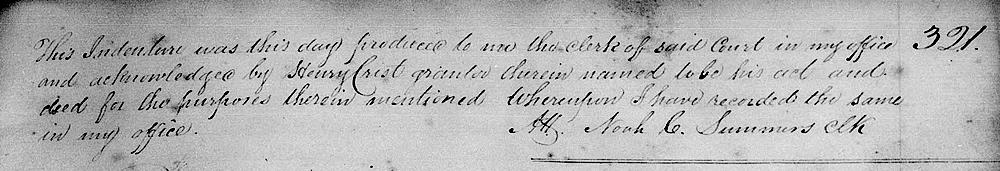 This Indenture was this day produced to me the clerk of said Court in my office 321.
and acknowledged by Henry Crist grantor therein named to be his act and
deed for the purposes therein mentioned Whereupon I have recorded the same
in my office. Att. Noah C. Summers Clk